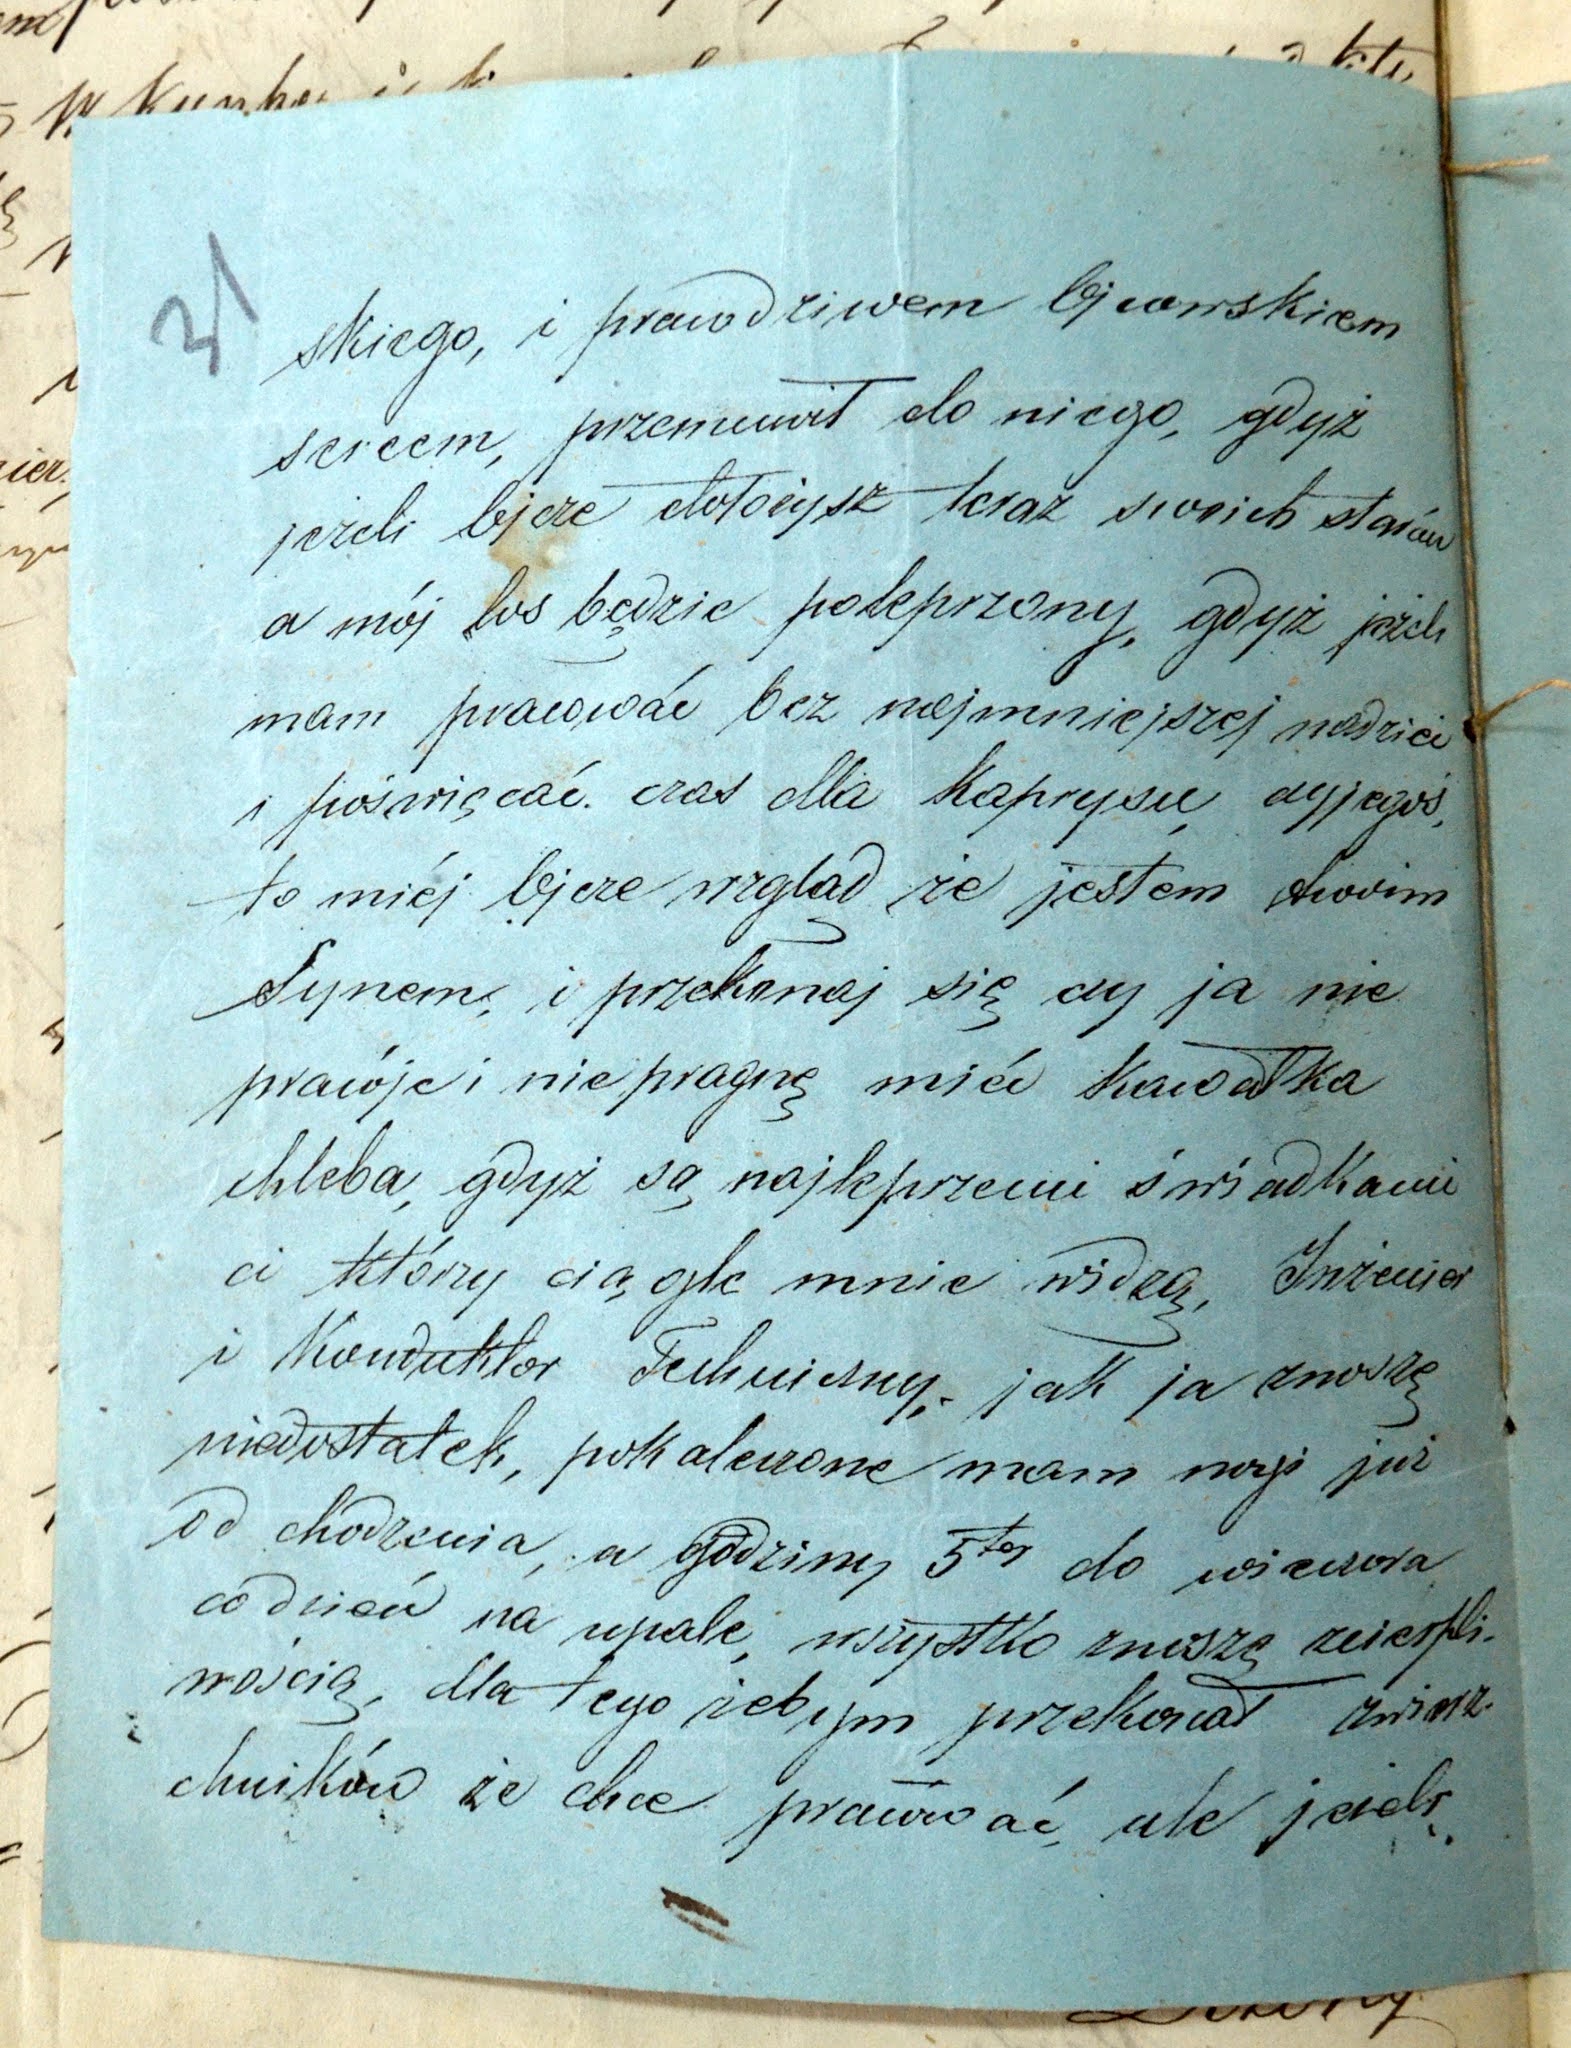 31
skiego, i prawdziwem Ojcowskiem
sercem, przemuwił do niego, gdyż
jeżeli Ojcze dołożysz teraz swoich starań
a mój los będzie polepszony, gdyż jeżeli
mam pracować bez najmniejszej nadziei
i poświęcać czas dla kaprysu czyjegoś,
to miéj Ojcze wzgląd że jestem twoim
Synem, i przekonaj się czy ja nie
pracóje i nie pragnę mieć kawałka
chleba, gdyż są najleprzemi świadkami
ci którzy ciągle mnie widzą, Inżenier
i Konduktor Techniczny, jak ja znoszę
niedostatek, pokaleczone mam nogi już
od chodzenia, a godziny 5tej do wieczora
codzień na upale, wszystko znoszę zcierpli-
wością, dla tego żebym przekonał zwierz-
chników że chce pracować, ale jeżeli